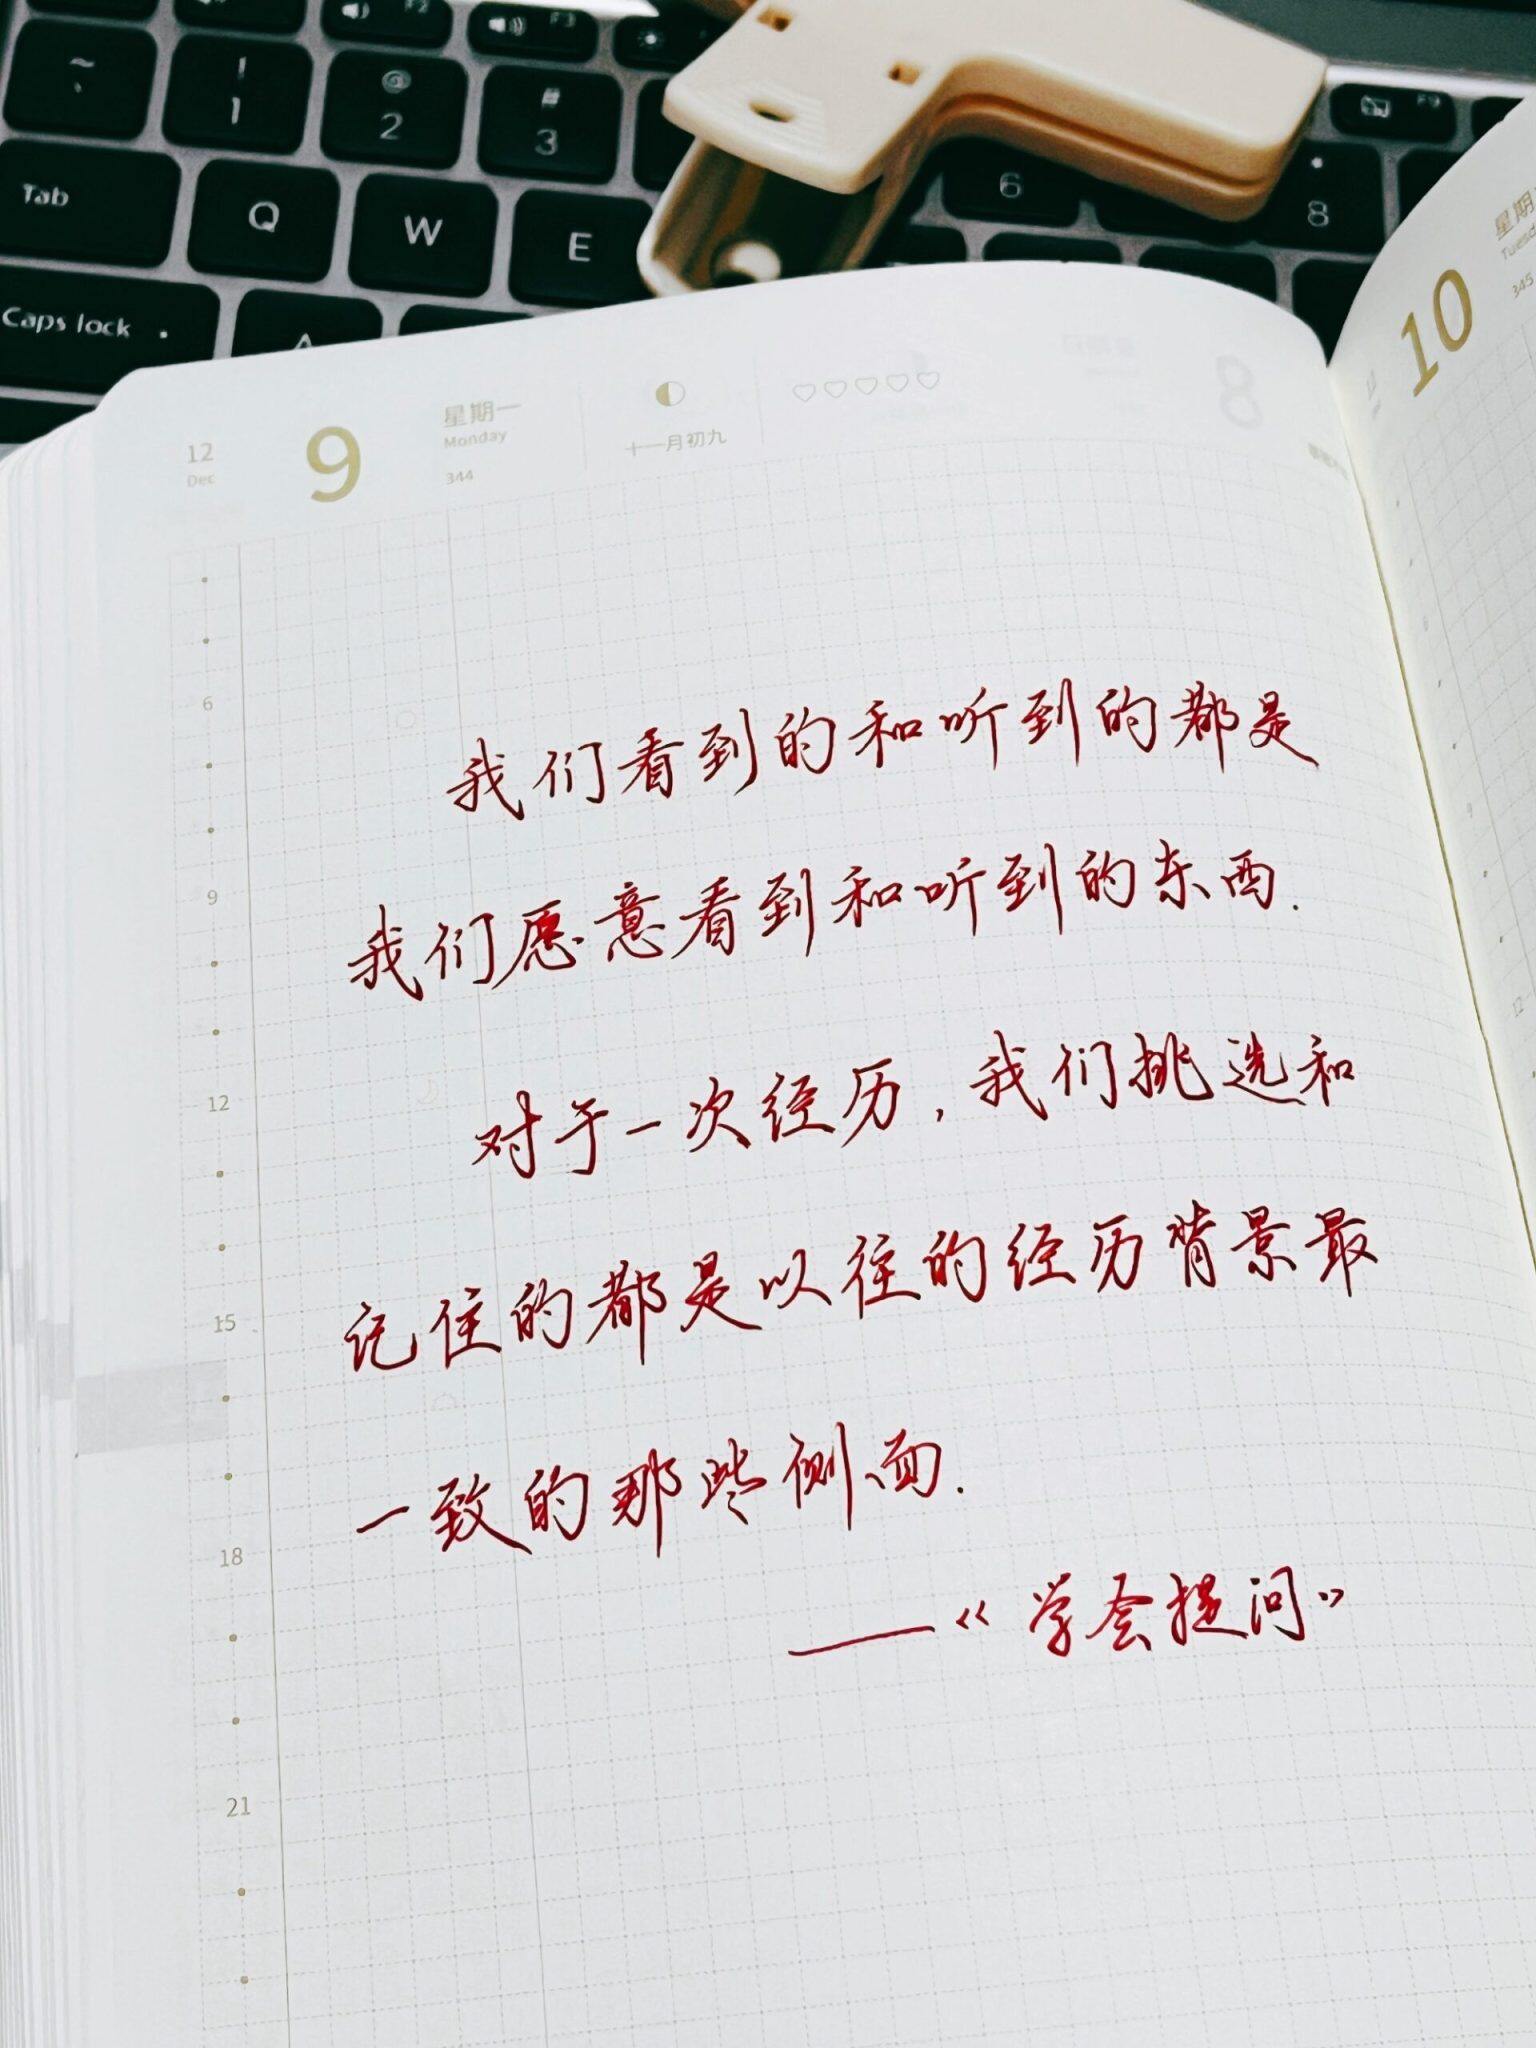 F2
F3
F9
~
`
!
1
@
2
#
3
6
8
Tab
Q
W
E
Caps lock
A
12
Dec
9
星期一
Monday
344
十一月初九
8
10
星期
345
6
9
12
15
18
21
12
我们看到的和听到的都是
我们愿意看到和听到的东西.
对于一次经历,我们挑选和
记住的都是以往的经历背景最
一致的那些侧面.
——《学会提问》